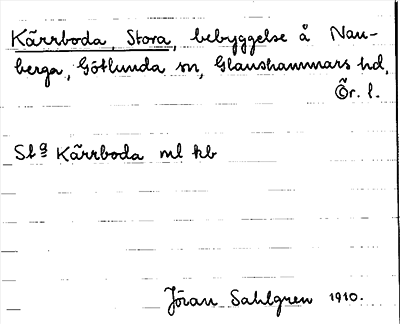 Kärrboda, Stora, bebyggelse å Nau-
berga, Götlunda sn, Glanshammars hd,
Ör. l.
St a Kärrboda ml kb
Jöran Sahlgren 1910.